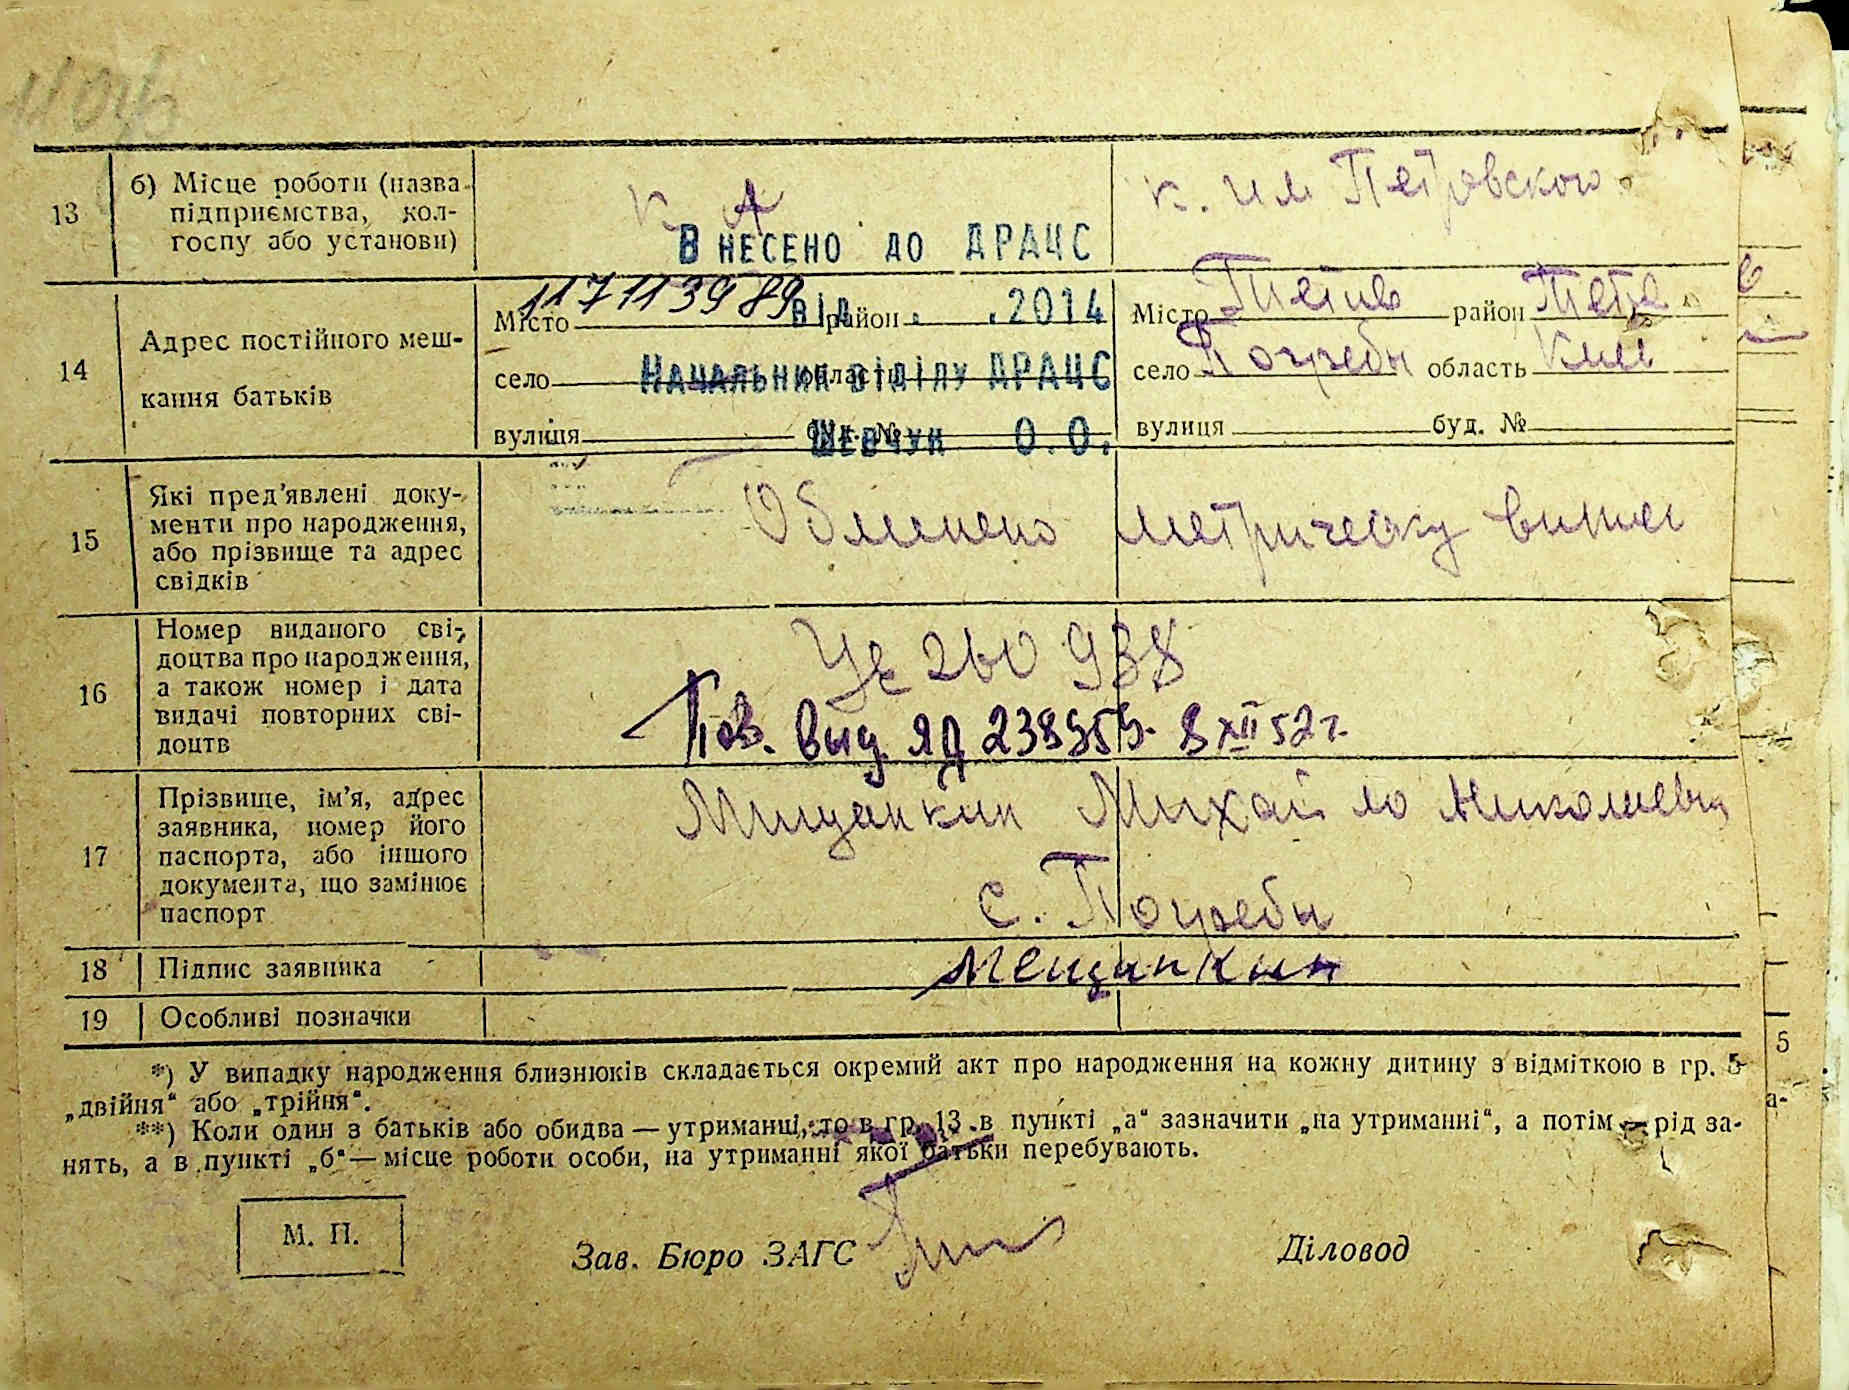 13
б) Місце роботи (назва
підприємства, кол-
госпу або установи)
К А
к. им Петровского
ВНЕСЕНО ДО ДРАЦС
14
Адрес постійного меш-
кання батьків
1171139 89
від . .2014
Місто район
Місто Тетиев район Тетие
НАЧАЛЬНИК ВІДІЛУ ДРАЦС
село область
село Погребы область Киев
ШЕВЧУК О.О.
вулиця буд. №
вулиця буд. №
15
Які пред'явлені доку-
менти про народження,
або прізвище та адрес
свідків
Обменено метрическу
16
Номер виданого сві-
доцтва про народження,
а також номер і дата
видачі повторних сві-
доцтв
260 938
Пов. выд ЯД 8 XII 52 г.
17
Прізвище, ім'я, адрес
заявника, номер його
паспорта, або іншого
документа, що замінює
паспорт
Мищанкин Михайло Николаевич
с. Погребы
18
Підпис заявника
Мещанкин
19
Особливі позначки
*) У випадку народження близнюків складається окремий акт про народження на кожну дитину з відміткою в гр. 5
„двійня“ або „трійня“.
**) Коли один з батьків або обидва — утриманці, то в гр. 13 в пункті „а“ зазначити „на утриманні“, а потім — рід за-
нять, а в пункті „б“ — місце роботи особи, на утриманні якої батьки перебувають.
М. П.
Зав. Бюро ЗАГС
Діловод
5
а-